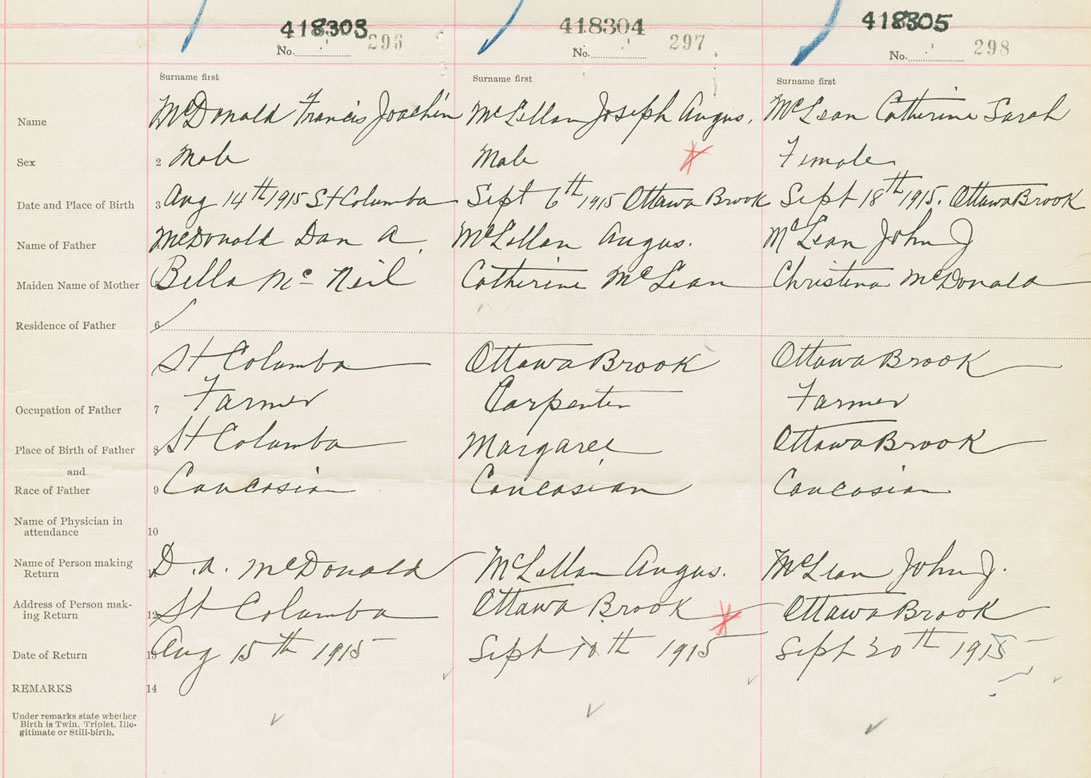 418303 418304 418305
No. 296 No. 297 No. 298
Surname first Surname first Surname first
Name McDonald Francis Joachin McLellan Joseph Angus. McLean Catherine Sarah
Sex 2 Male Male Female
Date and Place of Birth 3 Aug 14th 1915 St Columba Sept 6th 1915 Ottawa Brook Sept 18th 1915. Ottawa Brook
Name of Father McDonald Dan A. McLellan Angus. McLean John J
Maiden Name of Mother Bella Mc Neil Catherine McLean Christena McDonald
Residence of Father 6
St Columba Ottawa Brook Ottawa Brook
Occupation of Father 7 Farmer Carpenter Farmer
Place of Birth of Father 8 St Columba Margaree Ottawa Brook
and
Race of Father 9 Caucasian Caucasian Caucasian
Name of Physician in
attendance 10
Name of Person making
Return D. A. McDonald McLellan Angus. McLean John J.
Address of Person mak-
ing Return 12 St Columba Ottawa Brook Ottawa Brook
Date of Return 13 Aug 15th 1915 Sept 10th 1915 Sept 20th 1915
REMARKS 14
Under remarks state whether
Birth is Twin, Triplet, Ille-
gitimate or Still-birth.